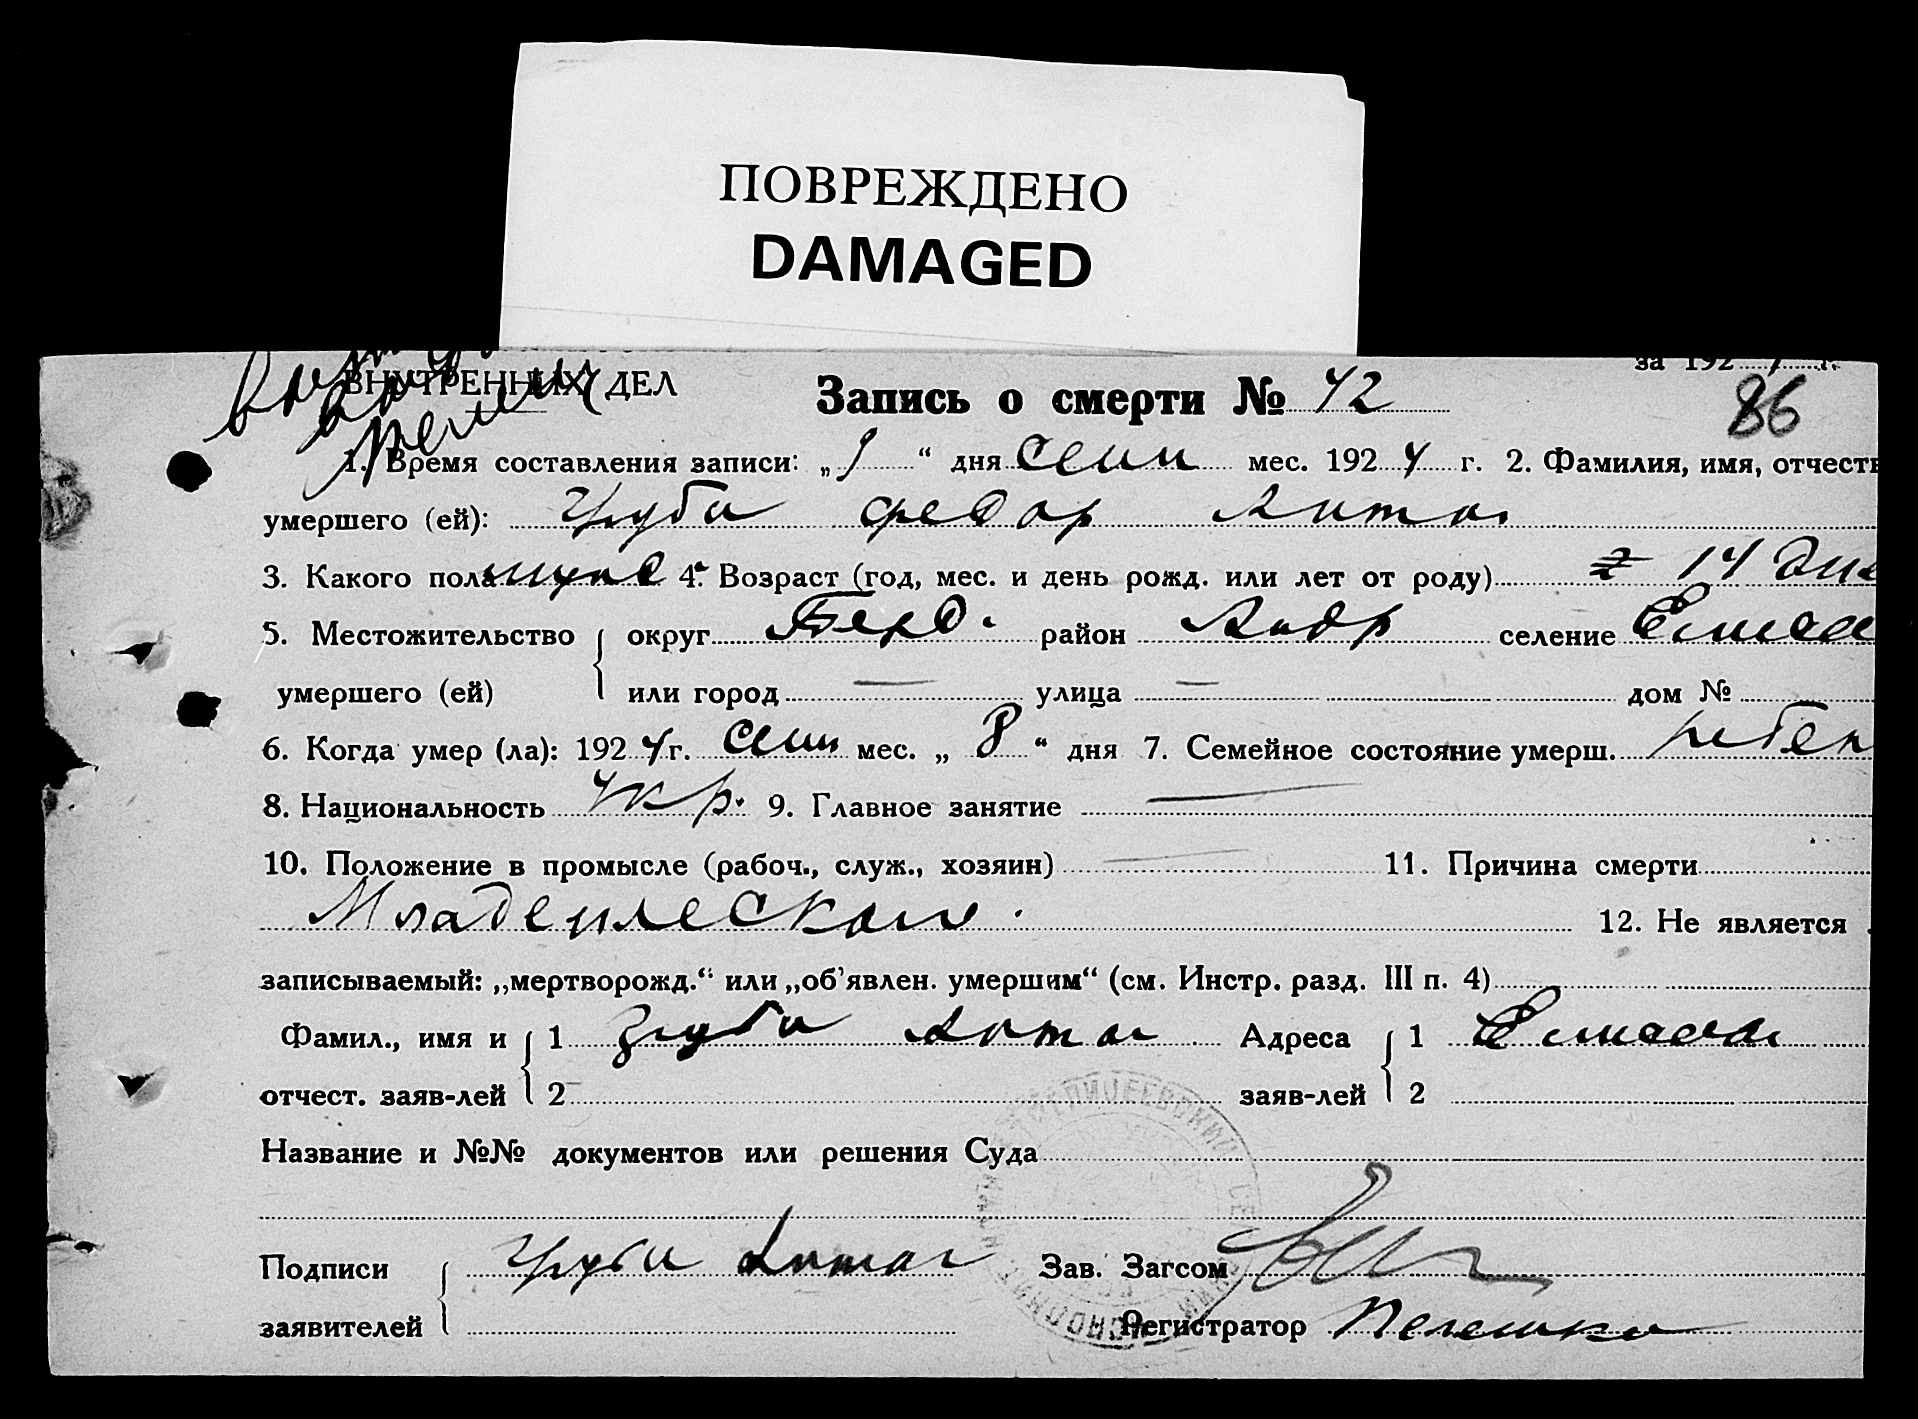 ПОВРЕЖДЕНО
DAMAGED
за 192 г.
ВНУТРЕННИХ ДЕЛ
Запись о смерти № 42
86
1. Время составления записи: „9“ дня сент мес. 1924 г. 2. Фамилия, имя, отчеств
умершего (ей): Груба Федор Антон
3. Какого пола муж 4. Возраст (год, мес. и день рожд. или лет от роду) 14 дне
5. Местожительство округ Берд. район Андр селение Елисее
умершего (ей) или город — улица — дом №
6. Когда умер (ла): 1924 г. сент мес. „8“ дня 7. Семейное состояние умерш. ребен
8. Национальность Укр. 9. Главное занятие —
10. Положение в промысле (рабоч., служ., хозяин) — 11. Причина смерти
Младенческая. 12. Не является
записываемый: „мертворожд.“ или „об'явлен. умершим“ (см. Инстр. разд. III п. 4)
Фамил., имя и 1 Груба Антон Адреса 1
отчест. заяв-лей 2 заяв-лей 2
Название и №№ документов или решения Суда
Подписи Груба Антон Зав. Загсом
заявителей Регистратор Пелешко